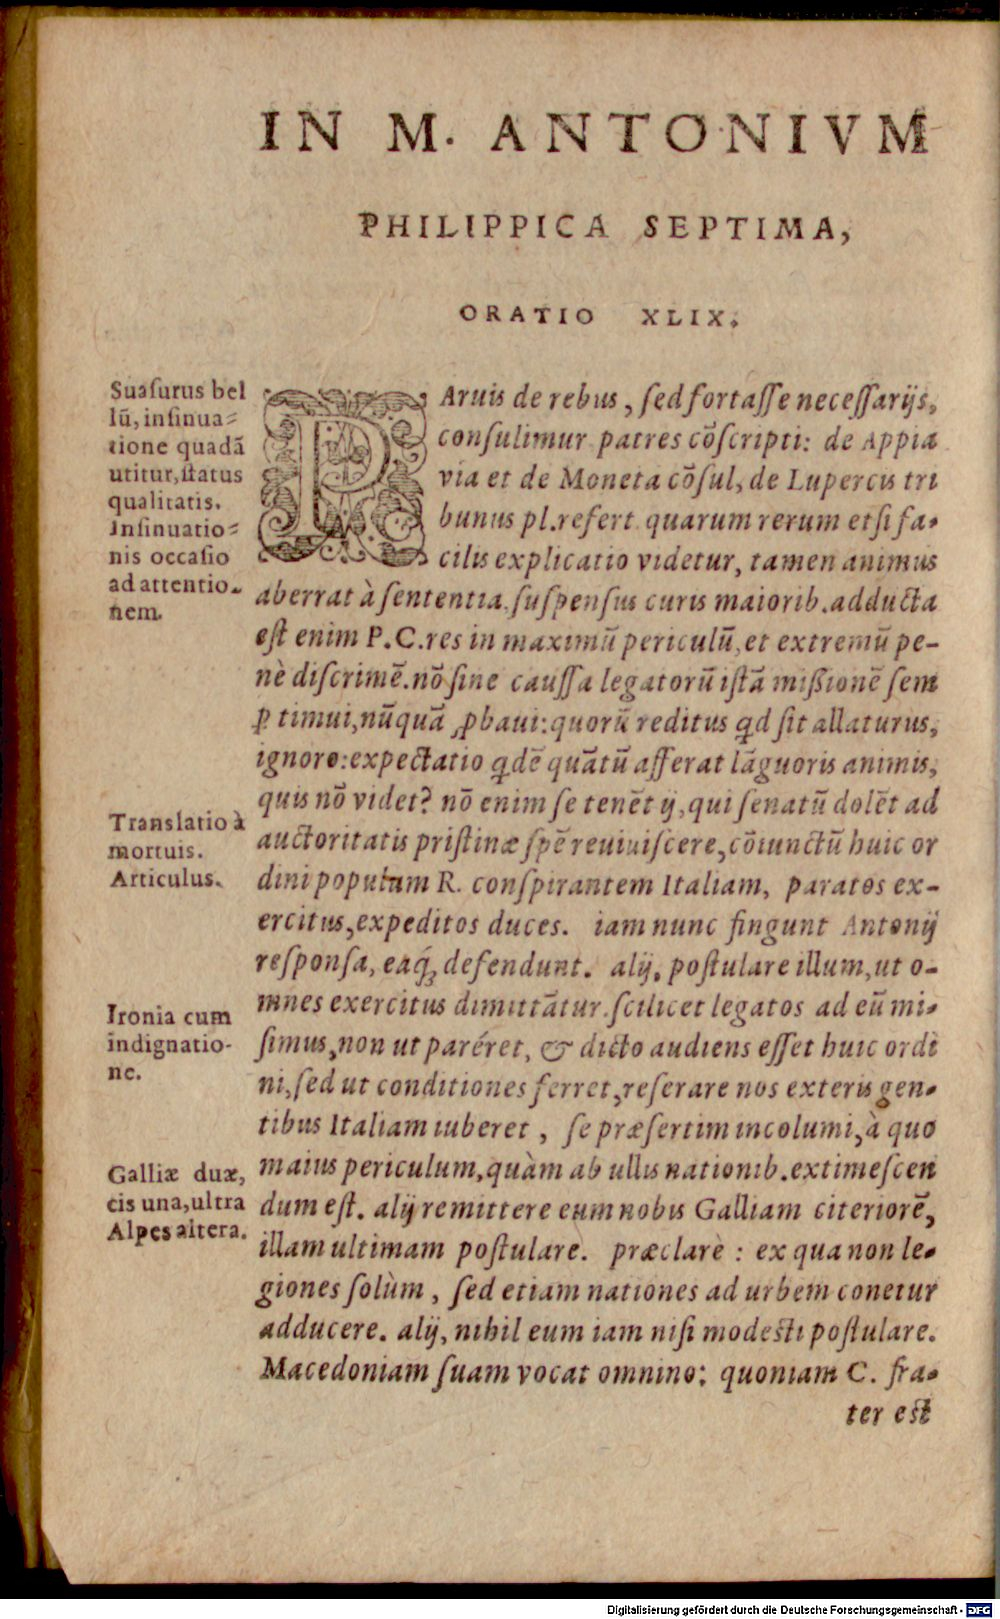 IN M. ANTONIVM
PHILIPPICA SEPTIMA,
ORATIO XLIX.
Suasurus bel
lū, insinua-
tione quadā
utitur, status
qualitatis.
Insinuatio-
nis occasio
ad attentio-
nem.
PAruis de rebus, sed fortasse necessarijs,
consulimur patres cōscripti: de Appia
via et de Moneta cōsul, de Lupercis tri
bunus pl. refert. quarum rerum etsi fa-
cilis explicatio videtur, tamen animus
aberrat à sententia, suspensus curis maiorib. adducta
est enim P. C. res in maximū periculū, et extremū pe-
nè discrimē. nō sine caussa legatorū istā mißionē sem
ꝑ timui, nūquā ꝓbaui: quorū reditus qd sit allaturus,
ignoro: expectatio qdē quātū afferat lāguoris animis,
quis nō videt? nō enim se tenēt ij, qui senatū dolēt ad
Translatio à
mortuis.
Articulus.
auctoritatis pristinæ spē reuiuiscere, cōiunctū huic or
dini populum R. conspirantem Italiam, paratos ex-
ercitus, expeditos duces. iam nunc fingunt Antonij
responsa, eaq́ꝫ defendunt. alij, postulare illum, ut o-
Ironia cum
indignatio-
ne.
mnes exercitus dimittātur. scilicet legatos ad eū mi-
simus, non ut paréret, & dicto audiens esset huic ordi
ni, sed ut conditiones ferret, reserare nos exteris gen-
tibus Italiam iuberet, se præsertim incolumi, à quo
Galliæ duæ,
cis una, ultra
Alpes altera.
maius periculum, quàm ab ullis nationib. extimescen
dum est. alij remittere eum nobis Galliam citeriorē,
illam ultimam postulare. præclarè: ex qua non le-
giones solùm, sed etiam nationes ad urbem conetur
adducere. alij, nihil eum iam nisi modesti postulare.
Macedoniam suam vocat omnino: quoniam C. fra-
ter est
Digitalisierung gefördert durch die Deutsche Forschungsgemeinschaft - DFG